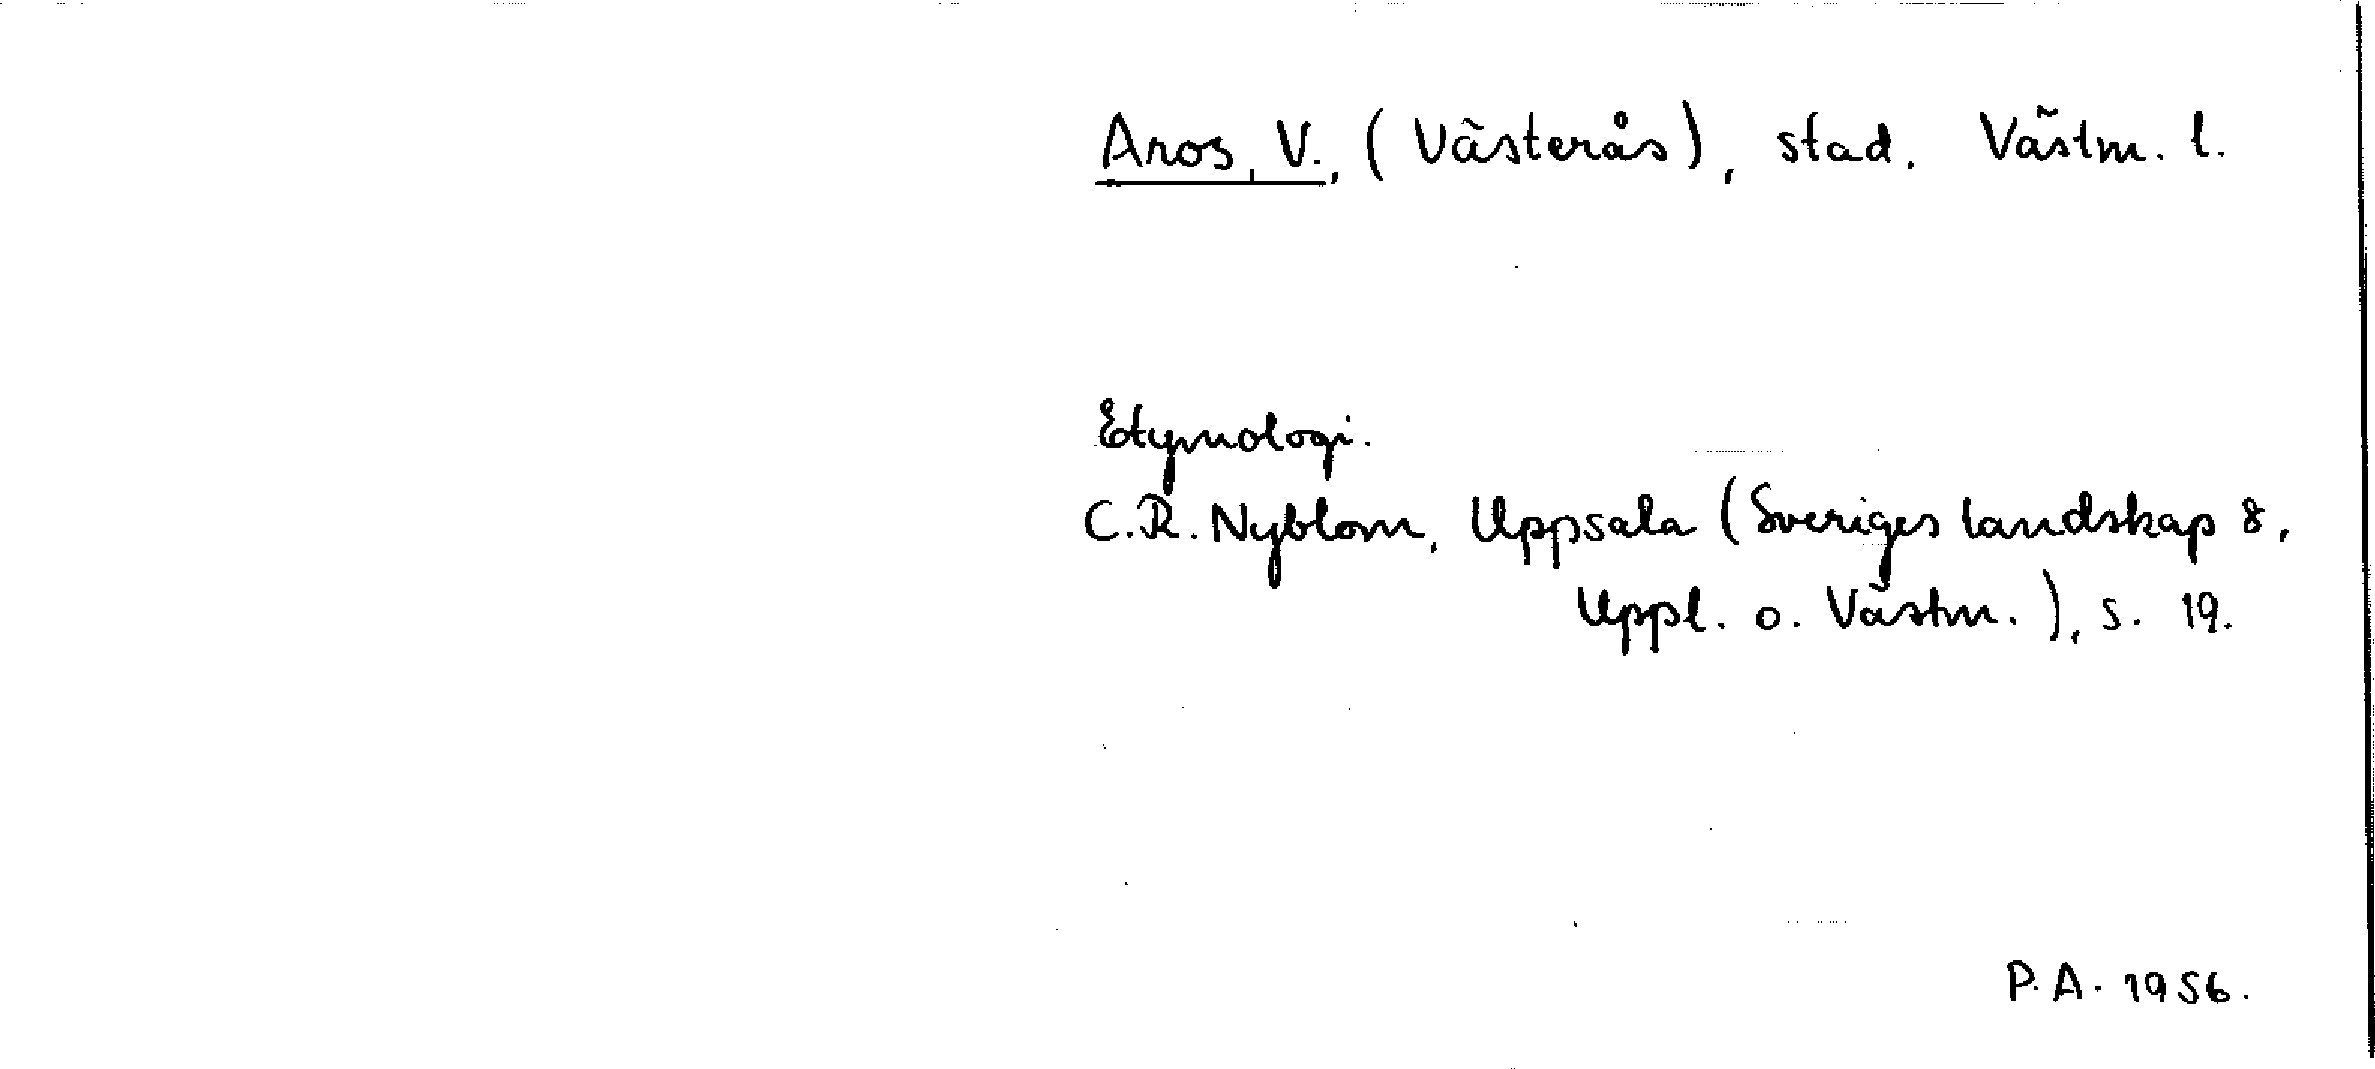 Aros, V., (Västerås), stad. Västm. l.
Etymologi.
C.R. Nyblom, Uppsala (Sveriges landskap 8,
Uppl. o. Västm.), s. 19.
P.A. 1956.